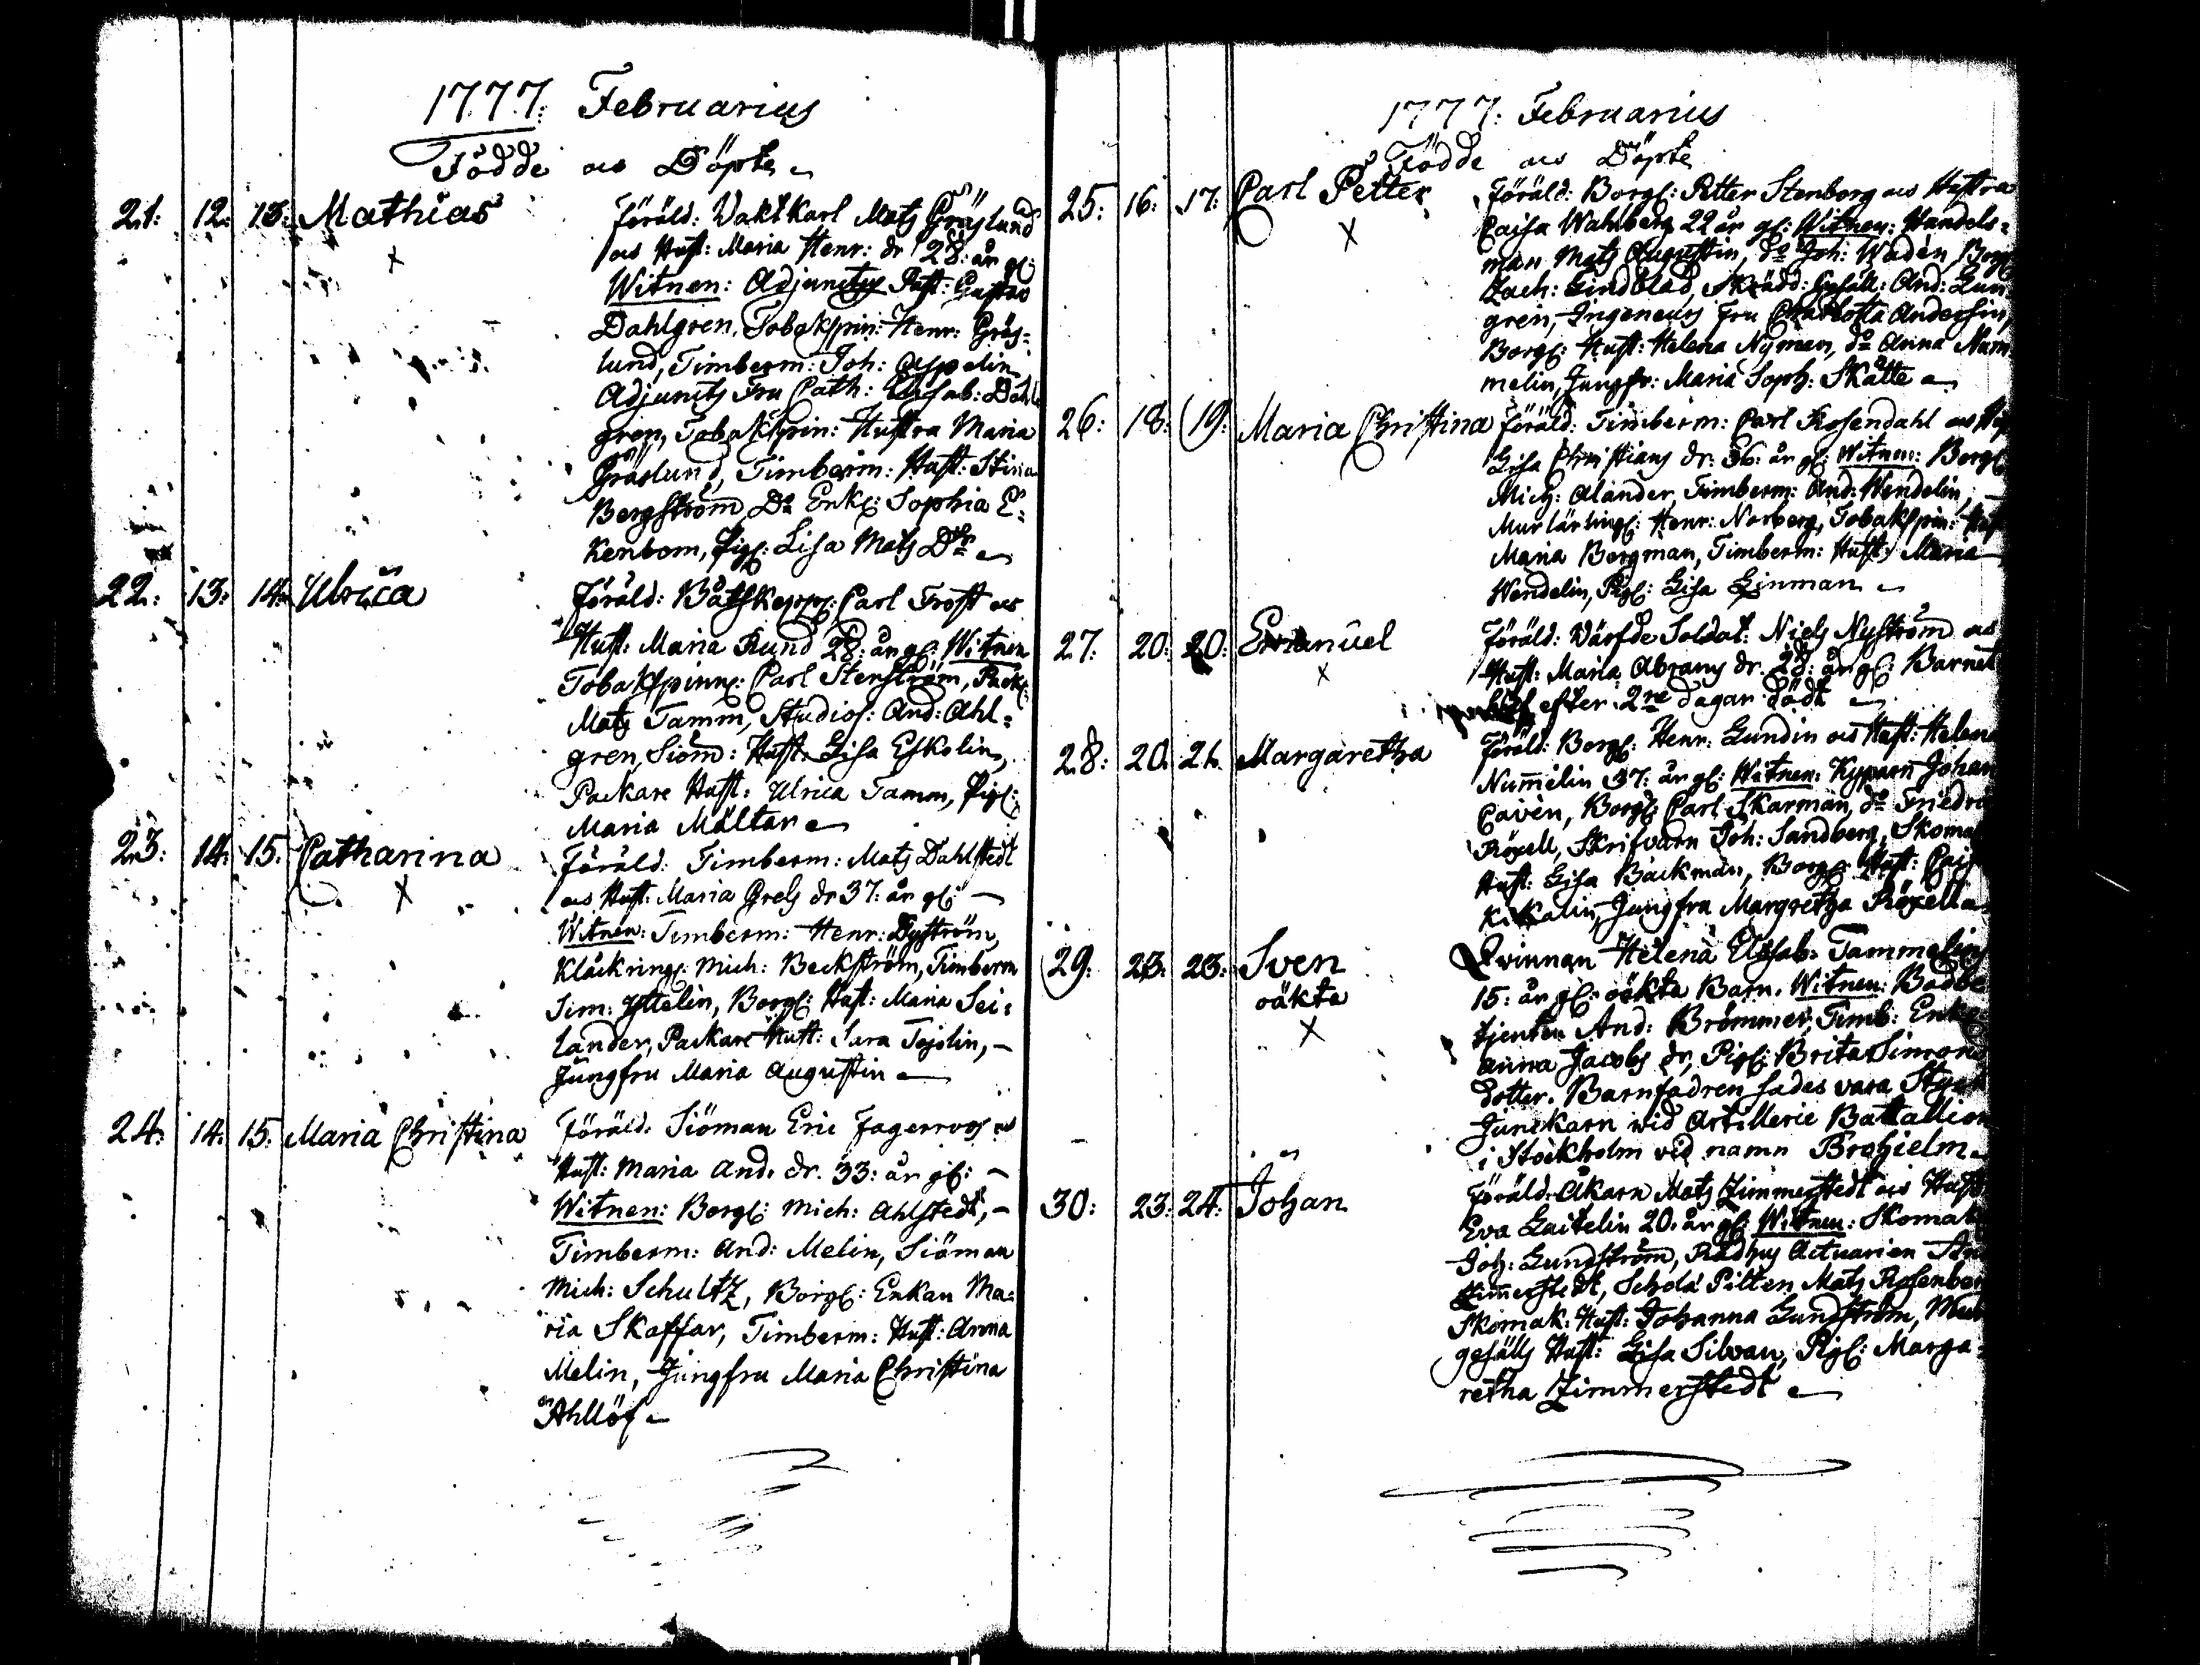 1777: Februarius
Födde ocs Döpte
21: 12: 13: Mathias Föräld: Waktkarl Mats Gröslund
ocs Hust: Maria Henr: dr 28: år gl:
Witnen: Adjunctus Past: Gustav
Dahlgren, Tobakspin: Henr: Grös-
lund, Timberm: Joh: Aspelin
Adjuncts Fru Cath: Elisab: Dahl
gren, Tobakspin: Hustra Maria
Gröslund, Timberm: Hust: Stina
Bergström Do Enkl: Sophia E:
kenbom, Pigl: Lisa Mats Dtr
22: 13: 14: Ulrica Föräld: Båtskepp: Carl Frost ocs
Hust: Maria Rund 28: år gl: Witnen
Tobakspinn: Carl Stenström, Pack:
Mats Tamm, Studios: And: Ahl=
gren, Siöm: Hust: Lisa Eskolin,
Packare Hust: Ulrica Tamm, Pigl:
Maria Mältar
23: 14: 15: Catharina Föräld: Timberm: Mats Dahlstedt
ocs Hust: Maria Grels dr 37: år gl:
Witnen: Timberm: Henr: Dyström,
Klåckring: Mich: Beckström, Timberm
Sim: Yttelin, Borgl: Hust: Maria Sei=
lander, Packare Hust: Sara Tejolin,
Jungfru Maria Augustin
24: 14: 15: Maria Christina Föräld: Siöman Eric Fagerroos ocs
Hust: Maria And: dr. 33: år gl:
Witnen: Borgl: Mich: Ahlstedt,
Timberm: And: Melin, Siöman
Mich: Schultz, Borgl: Enkan Ma=
ria Skaffar, Timberm: Hust: Anna
Melin, Jungfru Maria Christina
Ahllöf
1777: Februarius
Födde ocs Döpte
25: 16: 17: Carl Petter Föräld: Borgl: Petter Stenborg ocs Hustra
Caisa Wahlberg 22 år gl: Witnen: Handels=
man Mats Augustin, do Joh: Wadén, Borgl
Zach: Lindblad, Skrädd: Gesäll: And: Lun
gren, Ingeneurs Fru Charlotta Andersin,
Borgl: Hust: Helena Nyman, do Anna Num
melin, Jungfr: Maria Soph: Skatte
26: 18: 19: Maria Christina Föräld: Timberm: Carl Rosendahl ocs Hus
Lisa Christians dr: 36: år gl: Witnen: Borgl:
Mich: Alander, Timberm: And: Wendelin,
Murlärlingl: Henr: Norberg, Tobakspin: Hust
Maria Bergman, Timberm: Hust: Maria
Wendelin, Pigl: Lisa Linman
27: 20: 20: Emanuel Föräld: Wärfde Soldat: Niels Nyström ocs
Hust: Maria Abrams dr. 28: år gl: Barnet
blef efter 2ne dagar dödt
28: 20. 21. Margaretha Föräld: Borgl: Henr: Lundin ocs Hust: Helena
Nummelin 37: år gl: Witnen: Kyparen Johan
Cavén, Borgl: Carl Skarman, do Friedric
Röxell, Skrifvarn Joh: Sandberg, Skoma
Hust: Lisa Backman, Borgl: Hust: Caisa
Kikalin, Jungfru Margretha Röxella
29: 23: 23: Sven Qvinnan Helena Elisab: Tammelins
oäkta 15: år gl: oäkta Barn. Witnen: Badbe
tjenten And: Brömmer, Timb: Enkl
Anna Jacobs dr, Pigl: Brita Simons
Dotter. Barnfadren sades vara Styck
Junckarn wid Artillerie Battallion
i Stockholm vid namn Brohielm
30: 23: 24: Johan Föräld: Åkarn Mats Zimmerstedt ocs Hust
Eva Laitelin 20: år gl: Witnen: Skomak
Joh: Lundström, Rådhus Actuarien An
Zimmerstedt, Schola Pilten Mats Rosenber
Skomak: Hust: Johanna Lundström, Mur
gesälls Hust: Lisa Silvan, Pigl: Marga=
retha Zimmerstedt